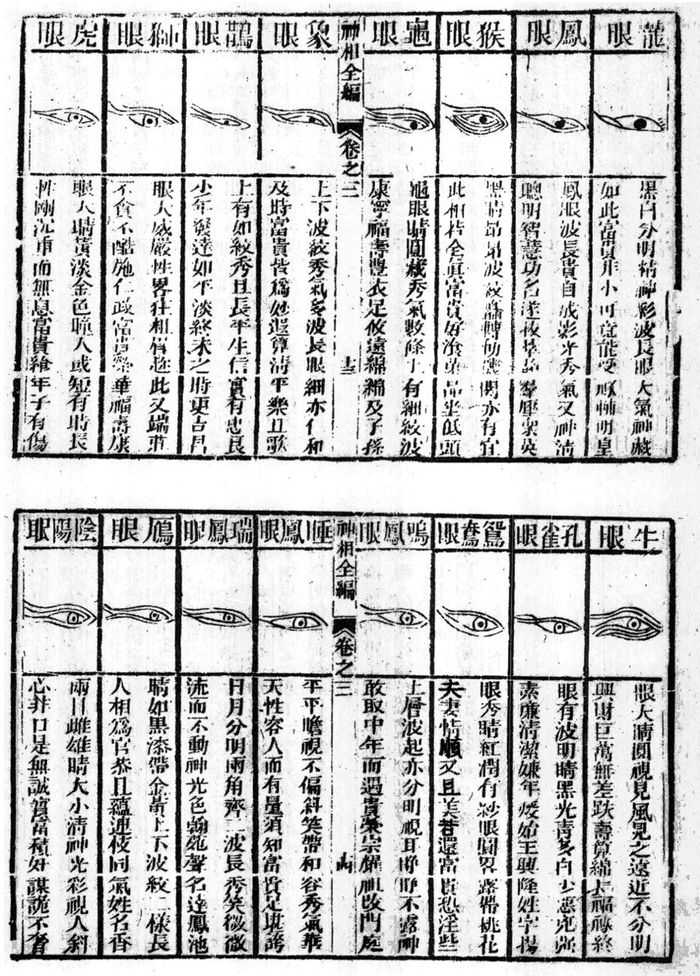 龍眼
黑白分明精神彩波長眼大氣神藏
如此富貴非小可竟能受祿輔明皇
鳳眼
鳳眼波長貴自成影光秀氣又神清
聰明智慧功名遂拔萃超羣壓衆英
猴眼
黑睛昂昂波紋矗轉動機關亦有宜
此相若全真富貴好滾菓品坐低頭
龜眼
龜眼睛圓藏秀氣數條上有細紋波
康寧福壽豐衣足攸遠綿綿及子孫
神相全編
卷之三
十三
象眼
上下波紋秀氣多波長眼細亦仁和
及時富貴皆為妙遐算清平樂且歌
鵲眼
上有如紋秀且長平生信實有忠良
少年發達如平淡終末之時更吉昌
獅眼
眼大威嚴性畧狂粗眉趂此又端莊
不貪不酷施仁政富貴榮華福壽康
虎眼
眼大睛黃淡金色瞳人或短有時長
性剛沉重而無患富貴終年子有傷
牛眼
眼大睛圓視見風見之遠近不分明
興財巨萬無差跌壽算綿長福祿終
孔雀眼
眼有波明睛黑光青多白少惡兇強
素廉清潔嫌年煖始王興隆姓字揚
鴛鴦眼
眼秀睛紅潤有紗眼圓畧露帶桃花
夫妻情順又且美若還富貴恐淫些
鳴鳳眼
上層波起亦分明視耳睜睜不露神
敢取中年而遇貴榮宗耀祖改門庭
神相全編
卷之三
十四
睡鳳眼
平平瞻視不偏斜笑帶和容秀氣華
天性容人而有量須知富貴足堪誇
瑞鳳眼
日月分明兩角齊二波長秀笑微微
流而不動神光色翰苑聲名達鳳池
鴈眼
睛如黑漆帶金黃上下波紋一樣長
入相為官恭且蘊連枝同氣姓名香
陰陽眼
兩目雌雄睛大小清神光彩視人斜
心非口是無誠實富積奸謀詭不奢